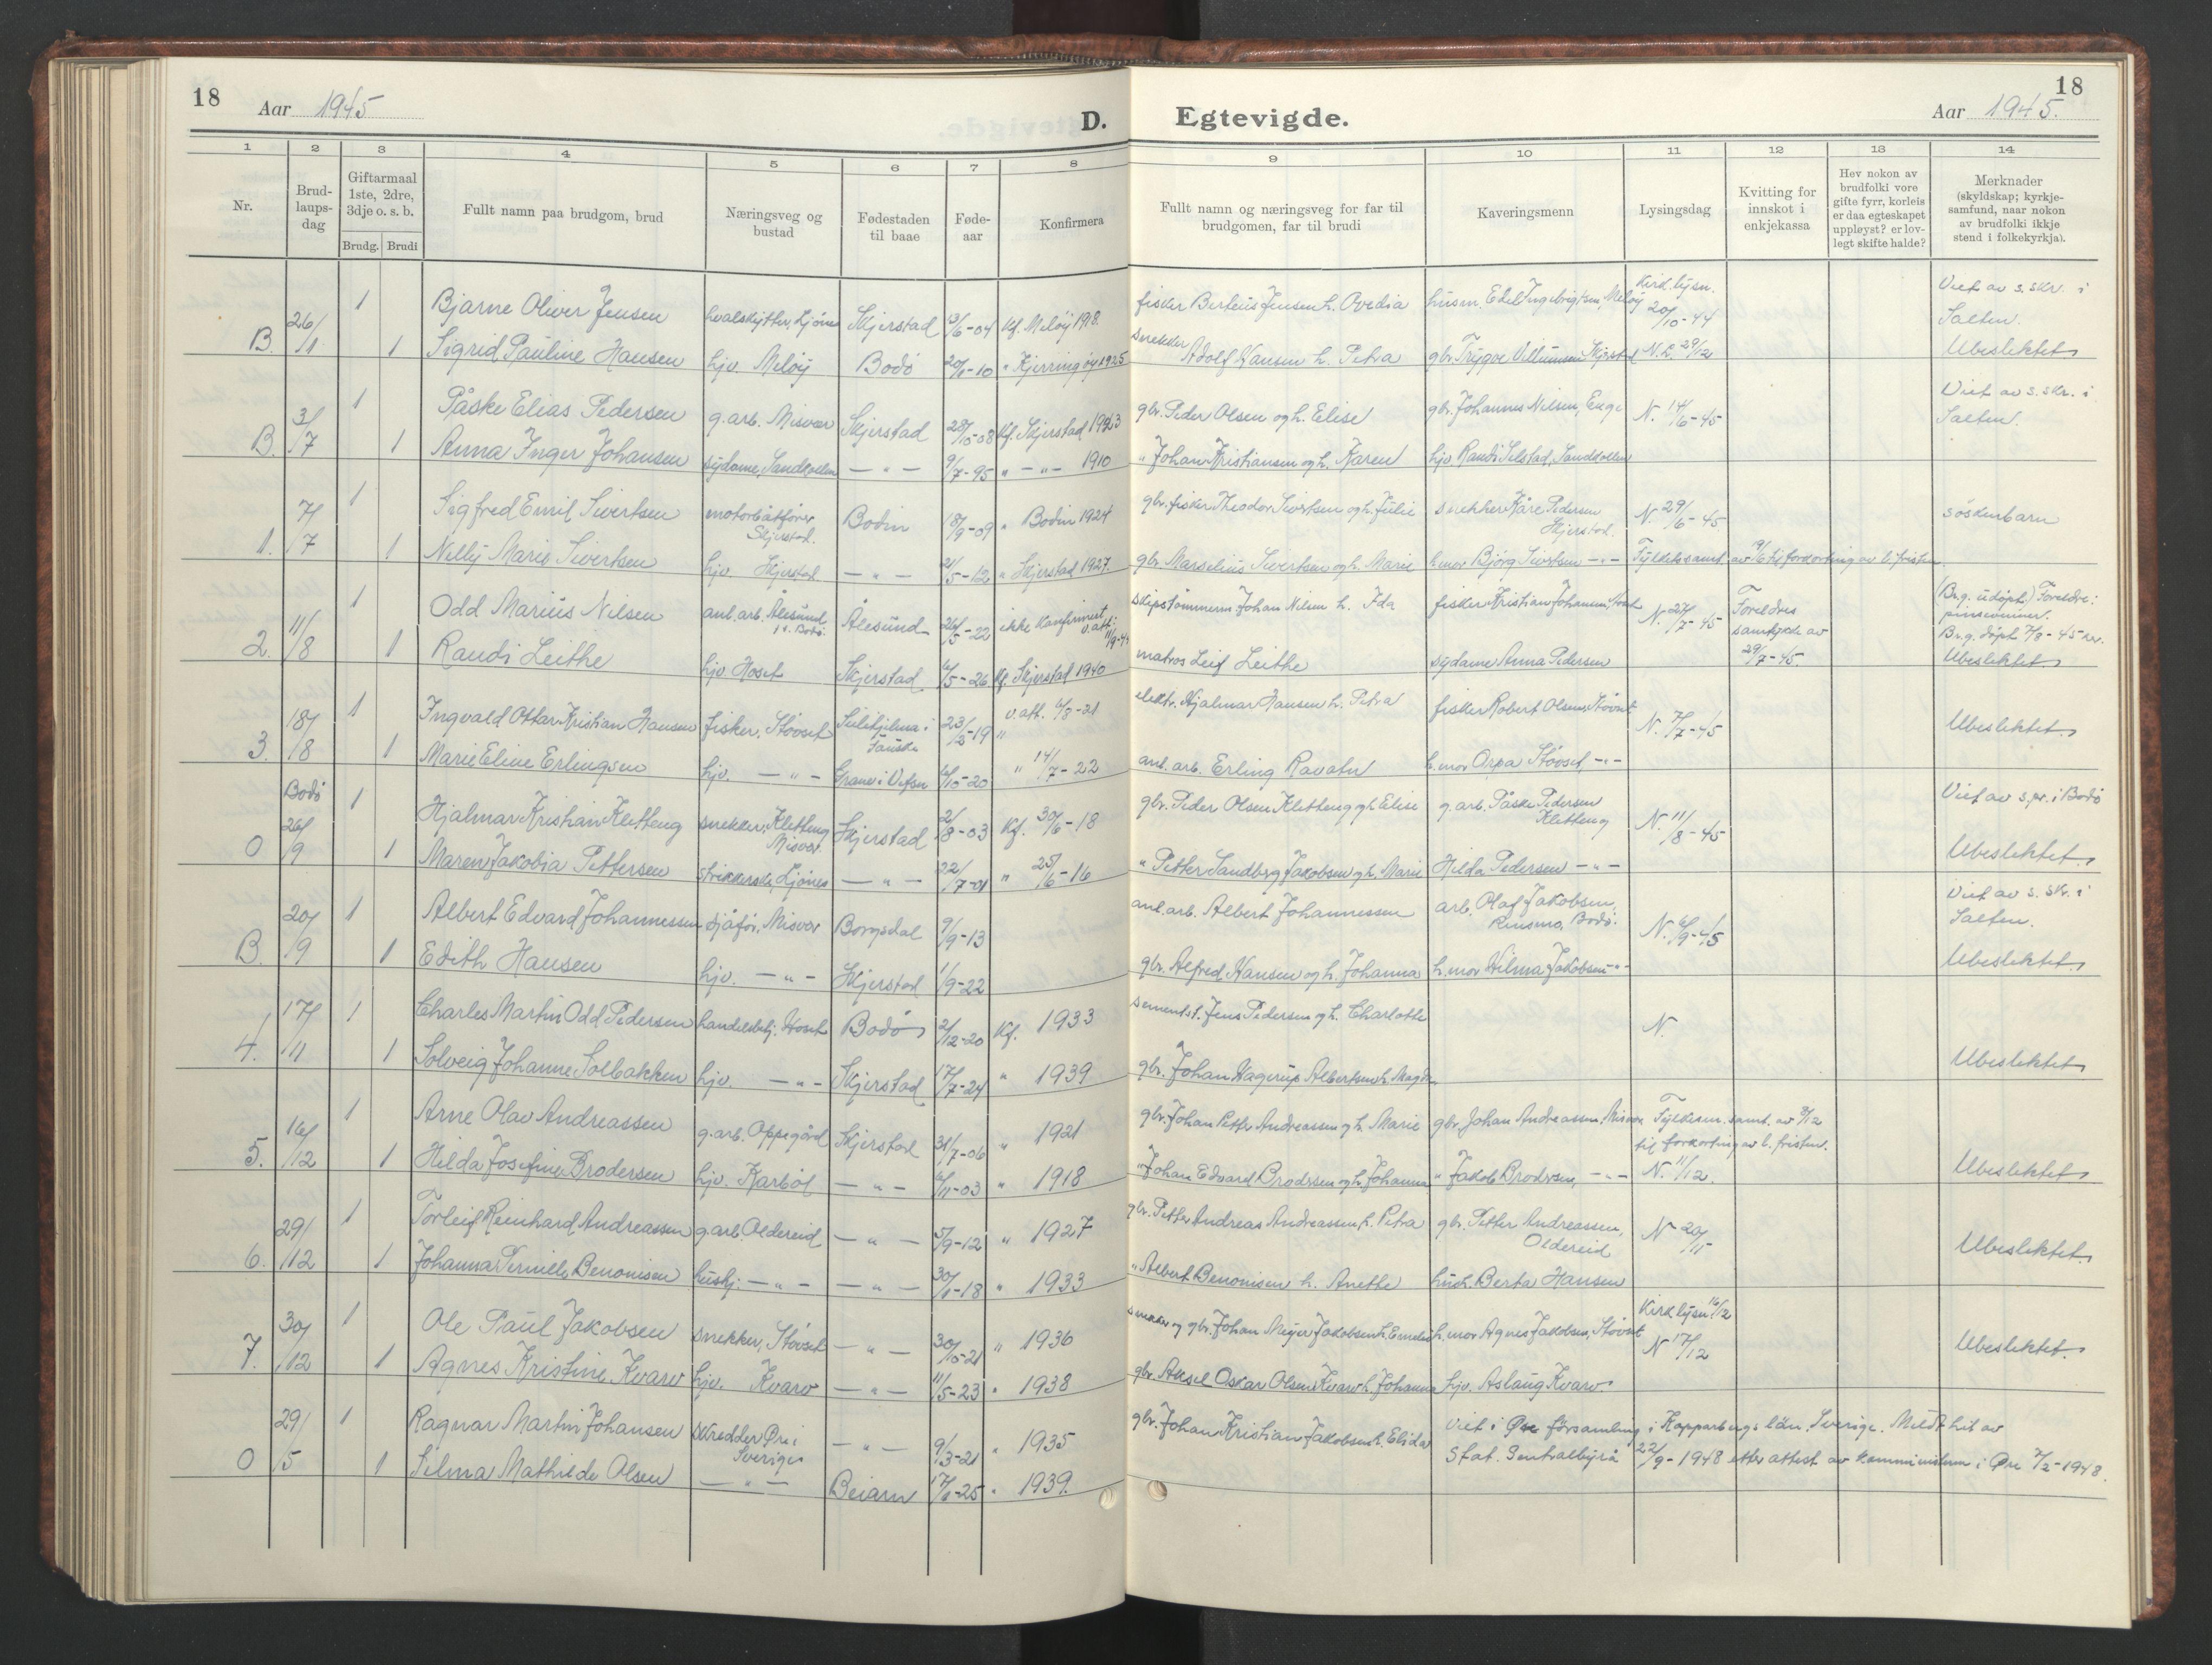 18
Aar 1945
D.
Egtevigde.
Aar 1945.
18
1 2 3 4 5 6 7 8 9 10 11 12 13 14
Nr.
Brud-
laups-
dag
Giftarmaal
1ste, 2dre,
3dje o. s. b.
Brudg. Brudi
Fullt namn paa brudgom, brud
Næringsveg og
bustad
Fødestaden
til baae
Føde-
aar
Konfirmera
Fullt namn og næringsveg for far til
brudgomen, far til brudi
Kaveringsmenn
Lysingsdag
Kvitting for
innskot i
enkjekassa
Hev nokon av
brudfolki vore
gifte fyrr, korleis
er daa egteskapet
uppløyst? er lov-
legt skifte halde?
Merknader
(skyldskap; kyrkje-
samfund, naar nokon
av brudfolki ikkje
stend i folkekyrkja).
B. 26/1 1 Bjarne Oliver Jensen hvalskytter, Ljønes Skjerstad 3/6-04 Kf. Meløy 1918. fisker Berteus Jensen h. Ovedia husm. Edel Ingebrigtsen, Meløy Kirk.lysn. 20/10-44 Viet av s.skr. i Salten.
1 Sigrid Pauline Hansen hjv. Meløy Bodø 20/6-10 " Kjerringøy 1925 snekker Adolf Hansen h. Petra gbr. Trygve Villumsen Skjerstad N.L. 29/12 Ubeslektet
B. 3/7 1 Påske Elias Pedersen g.arb. Misvær Skjerstad 28/10-08 Kf. Skjerstad 1923 gbr. Peder Olsen og h. Elise gbr. Johannes Nilsen, Enge N. 14/6-45 Viet av s.skr. i Salten.
1 Anna Inger Johansen sydame, Sandkollen — " — 9/7-95 " — " — 1910 " Johan Kristiansen og h. Karen hjv. Randi Selstad, Sandkollen
1. 7/7 1 Sigfred Emil Sivertsen motorbåtfører Skjerstad. Bodin 18/9-09 " Bodin 1924 gbr. fisker Theodor Sivertsen og h. Julie snekker Kåre Pedersen Skjerstad. N. 29/6-45 søskenbarn
1 Nelly Marie Sivertsen hjv. Skjerstad — " — 21/5-12 " Skjerstad 1927. gbr. Marselius Sivertsen og h. Marie h.mor Bjørg Sivertsen — " — Fylkets samt. av 19/6 til forkortning av l. fristen
2. 11/8 1 Odd Marius Nilsen anl.arb. Ålesund Ålesund 26/5-22 ikke konfirmert v.att. skipstømmerm. Johan Nilsen h. Ida fisker Kristian Johansen, N. 27/7-45 Foreldres samtykke av 29/7-45. (Brg. udøpt.) Foreldre: pinsevenner. Brg. døpt 7/8-45
1 Randi Leithe hjv. Hoset Skjerstad 6/5-26 Kf. Skjerstad 1940 matros Leif Leithe sydame Anna Pedersen Ubeslektet
3. 18/8 1 Ingvald Ottar Kristian Hansen fisker, Støvset Sulitjelma i Fauske 23/5-19 v.att. 6/8-21 elektr. Hjalmar Hansen h. Petra fisker Robert Olsen, Støvset N. 7/7-45 Ubeslektet
1 Marie Eline Erlingsen hjv. — " — Grane i Vefsn 6/10-20 " 14/7-22 anl. arb. Erling Ravatn h.mor Orpa Støvset — " —
Bodø
0 26/9 1 Hjalmar Kristian Kletteng snekker, Kletteng Misvær. Skjerstad 2/8-03 Kf. 30/6-18 gbr. Peder Olsen Kletteng og h. Elise g.arb. Påske Pedersen Kletteng N. 11/8-45 Viet av s.pr. i Bodø
1 Maren Jakobia Pettersen strikkerske, Ljønes — " — 22/7-01 " 25/6-16 " Petter Sandberg Jakobsen og h. Marie Hilda Pedersen — " — Ubeslektet
B. 20/9 1 Albert Edvard Johannessen sjåfør, Misvær 9/9-13 anl. arb. Albert Johannessen arb. Olaf Jakobsen, Rensmo, Bodø. N. 6/9-45 Viet av s. skr. i Salten.
1 Edith Hansen hjv. — " — Skjerstad 1/9-22 gbr. Alfred Hansen og h. Johanna h.mor Hilma Jakobsen — " — Ubeslektet
4. 17/11 1 Charles Martin Odd Pedersen handelsbetj. Hoset Bodø 2/12-20 Kf. 1933 sementst. Jens Pedersen og h. Charlotte N.
1 Solveig Johanne Solbakken hjv. — " — Skjerstad 17/7-24 " 1939 gbr. Johan Hagerup Albertsen h. Magda Ubeslektet
5. 16/12 1 Arne Olav Andreassen g.arb. Oppegård Skjerstad 31/7-06 " 1921 gbr. Johan Petter Andreassen og h. Marie gbr. Johan Andreassen, Misvær Fylkesm. samt. av 8/12 til forkortning av l. fristen.
1 Hilda Josefine Brodersen hjv. Karbøl — " — 6/11-03 " 1918 " Johan Edvard Brodersen og h. Johanna " Jakob Brodersen, — " — N. 11/12. Ubeslektet
6. 29/12 1 Torleif Reinhard Andreassen g.arb. Oldereid — " — 5/9-12 " 1927 gbr. Petter Andreas Andreassen h. Petra gbr. Petter Andreassen, Oldereid N 20/11 Ubeslektet
1 Johanna Pernille Benonisen hushj. — " — — " — 30/6-18 " 1933 " Albert Benonisen h. Anethe hush. Berta Hansen
7. 30/12 1 Ole Paul Jakobsen snekker, Støvset — " — 30/10-21 " 1936 snekker og gbr. Johan Meyer Jakobsen h. Emelie h.mor Agnes Jakobsen, Støvset Kirk lysn 16/12 N 17/12 Ubeslektet
1 Agnes Kristine Kvarv hjv. Kvarv — " — 11/5-23 " 1938 gbr. Aksel Oskar Olsen Kvarv h. Johanna hjv. Aslaug Kvarv
0 29/5 1 Ragnar Martin Johansen skredder Øre i Sverige — " — 9/3-21 " 1935 gbr. Johan Kristian Jakobsen h. Elida Viet i Øre församling i Kopparbergs län, Sverige. Meldt hit av
1 Selma Mathilde Olsen — " — Beiarn 17/6-25 " 1939. Stat. Sentralbyrå 22/9-1948 etter attest av komministern i Øre 7/2-1948.